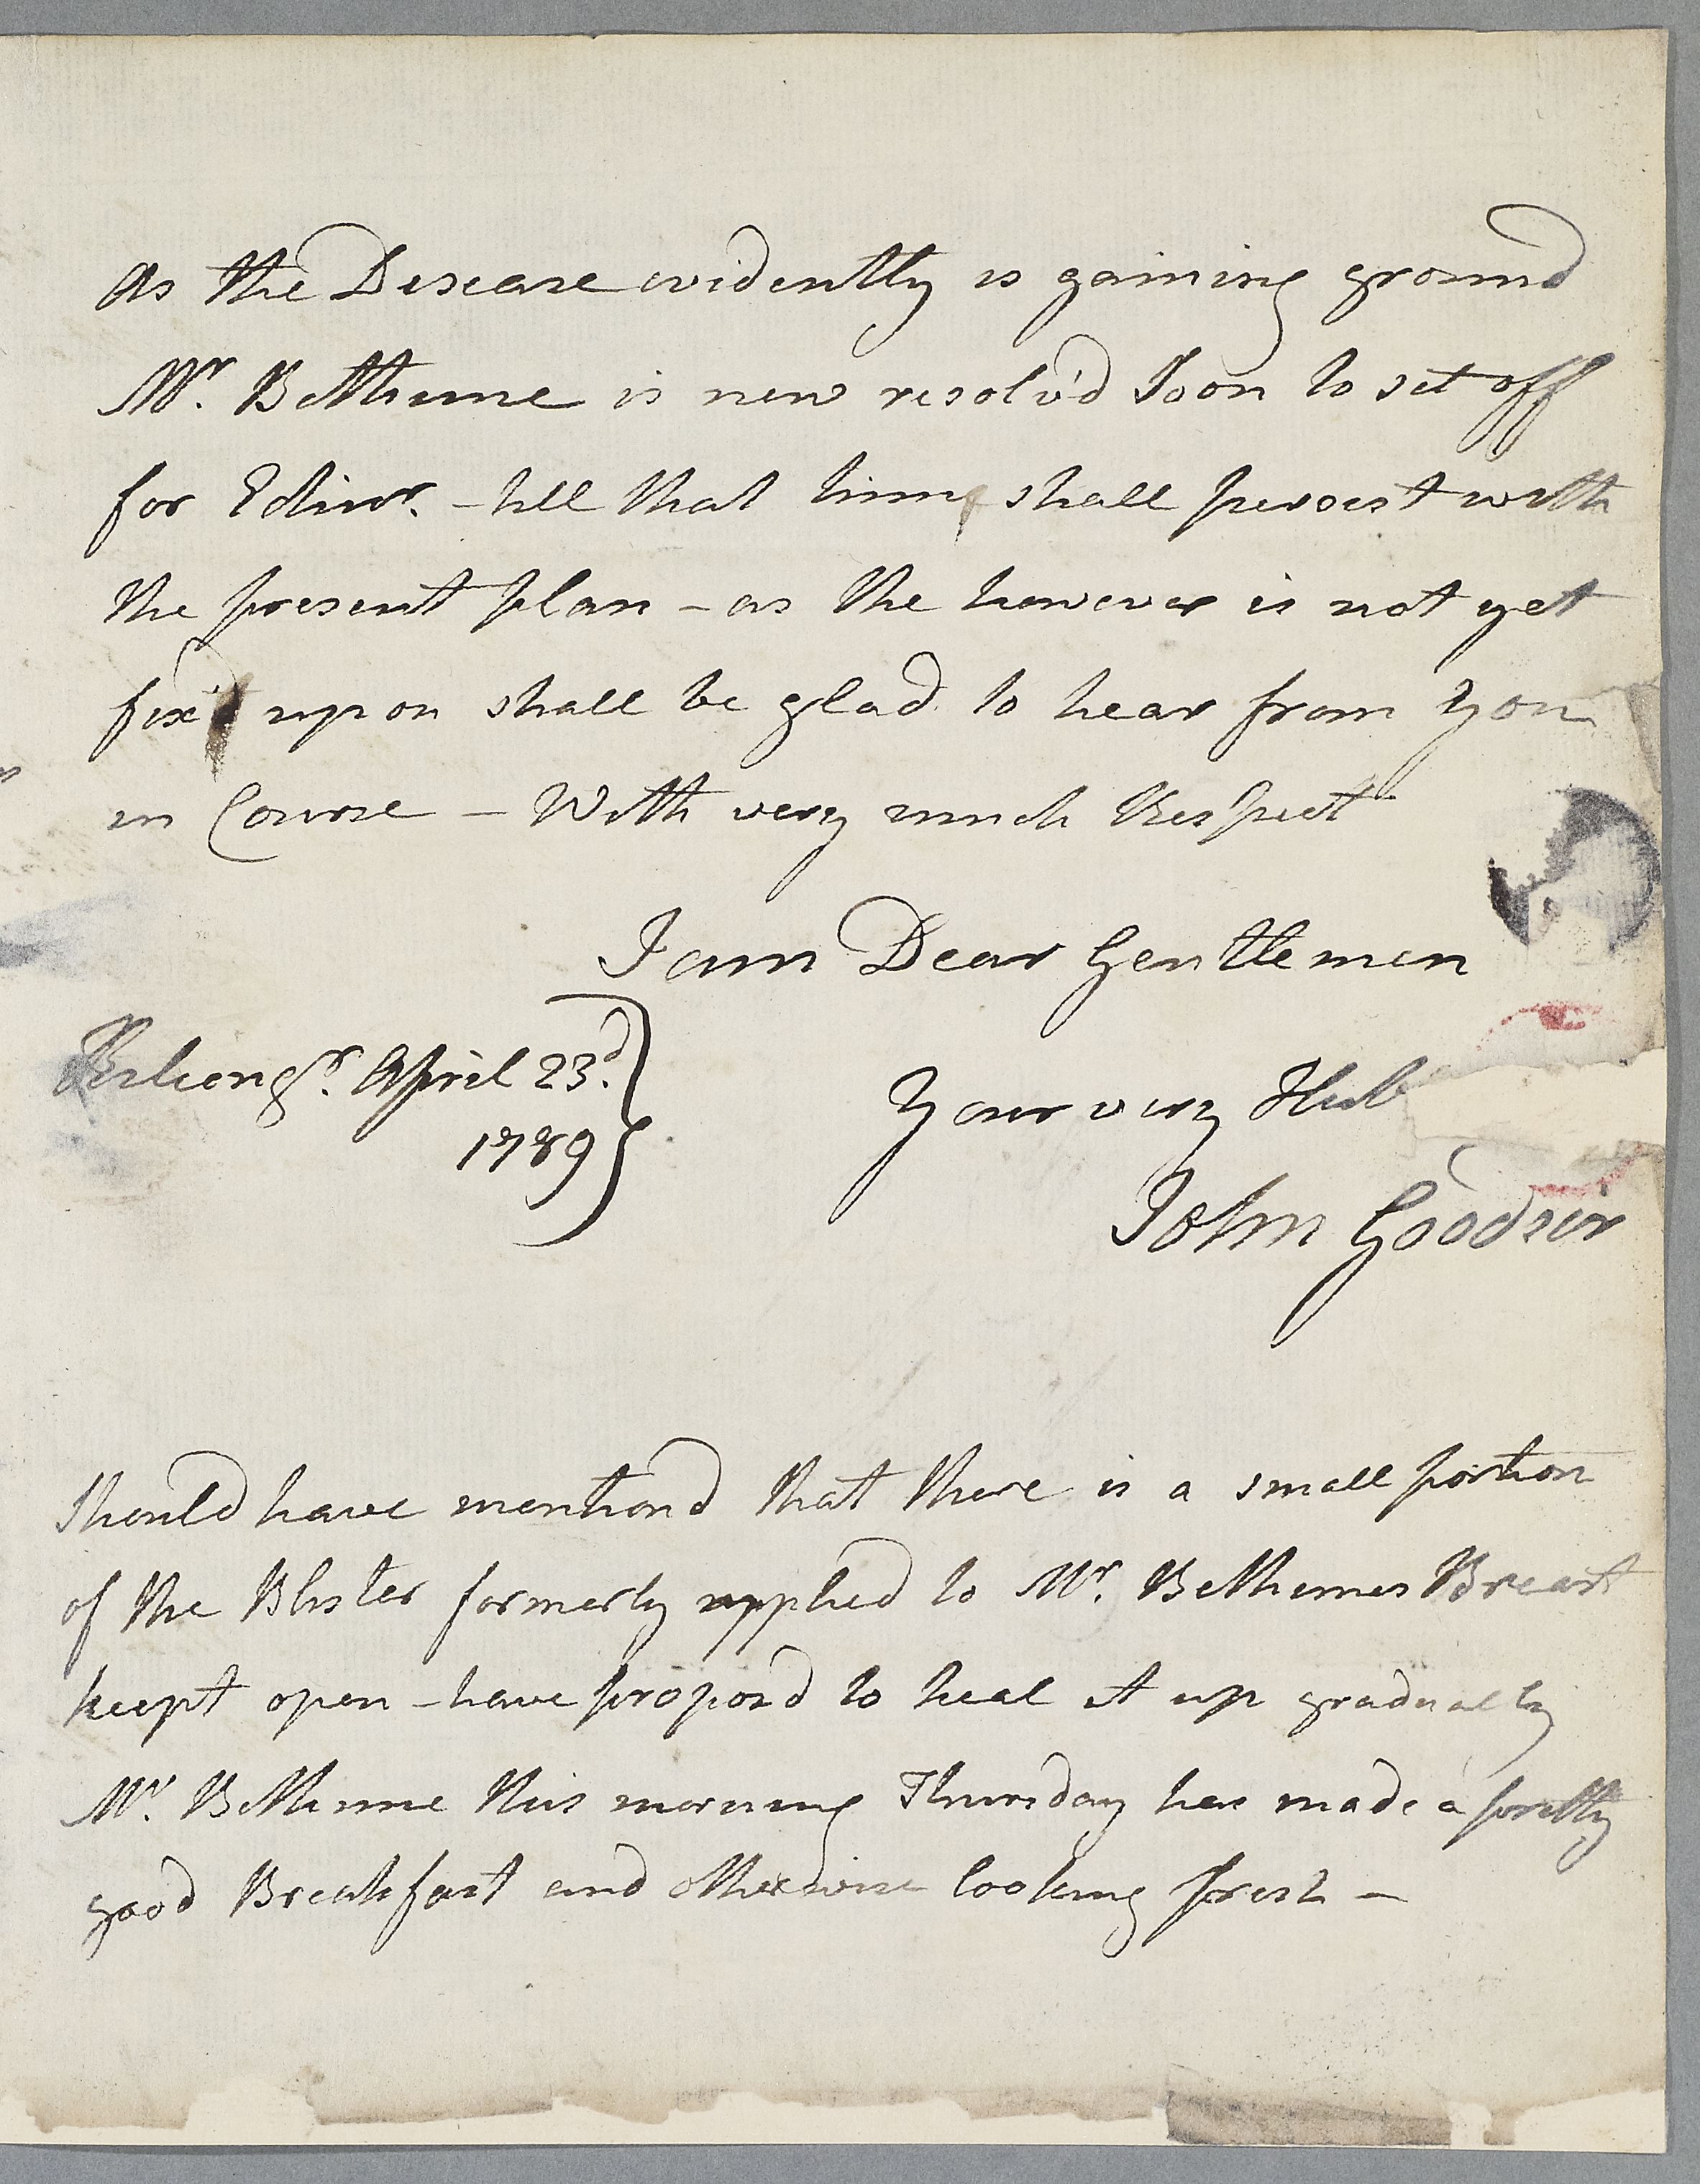 As the Disease evidently is gaining ground
Mr. Bethune is now resolv'd Soon to set off
for Edinr. - till that time shall persist with
the present plan - as the however is not yet
fix'd upon shall be glad to hear from you
in Course - With very much Respect
I am Dear Gentlemen
Kilcongr. April 23d.
1789
Your very Hub
John Goodsir
Should have mentiond that there is a small portion
of the Blister formerly applied to Mr. Bethunes Breast
keept open - have propos'd to heal it up gradually
Mr. Bethune this morning Thursday has made a pretty
good Breakfast and otherwise looking fresh -